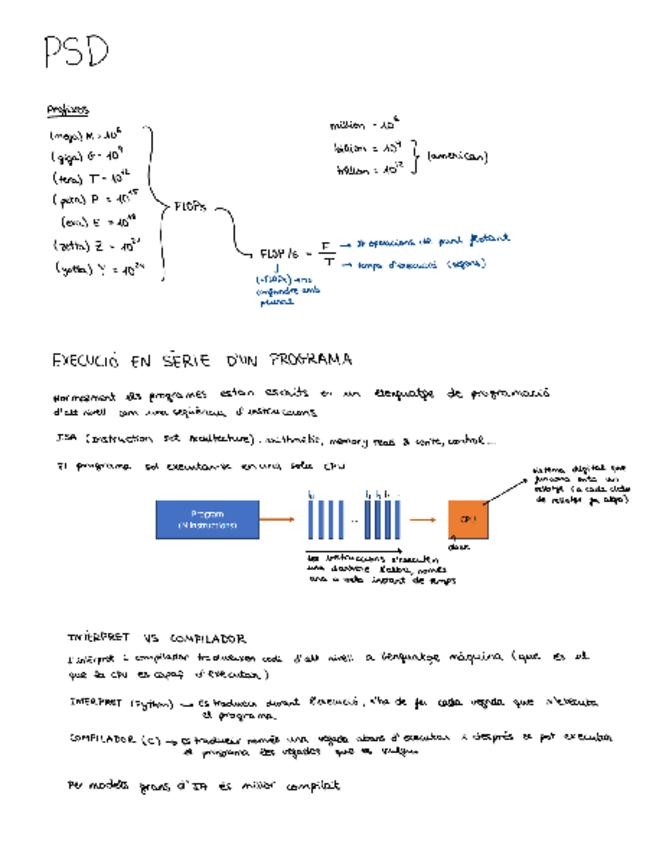 PSD
Prefixos
(mega) M = 10^6
(giga) G = 10^9
(tera) T = 10^12
(peta) P = 10^15
(exa) E = 10^18
(zetta) Z = 10^21
(yotta) Y = 10^24
FLOPs
million = 10^6
billion = 10^9
trillion = 10^12
(american)
FLOP/s = F / T
→ # operacions de punt flotant
→ temps d'execució (segons)
(=FLOPS) → no
confondre amb
plural
EXECUCIÓ EN SÈRIE D'UN PROGRAMA
Normalment els programes estan escrits en un llenguatge de programació
d'alt nivell com una seqüència d'instruccions
ISA (Instruction Set Architecture): arithmetic, memory read & write, control...
El programa sol executar-se en una sola CPU
Program
(N Instructions)
...
CPU
clock
sistema digital que
funciona amb un
rellotge (a cada cicle
de rellotge fa algo)
Les instruccions s'executen
una darrere l'altra, només
una a cada instant de temps
INTÈRPRET VS COMPILADOR
L'intèrpret i compilador tradueixen codi d'alt nivell a llenguatge màquina (que és el
que la CPU és capaç d'executar)
INTÈRPRET (Python) → es tradueix durant l'execució, s'ha de fer cada vegada que s'executa
el programa
COMPILADOR (C) → es tradueix només una vegada abans d'executar i després es pot executar
el programa les vegades que es vulgui
Per models grans d'IA és millor compilat